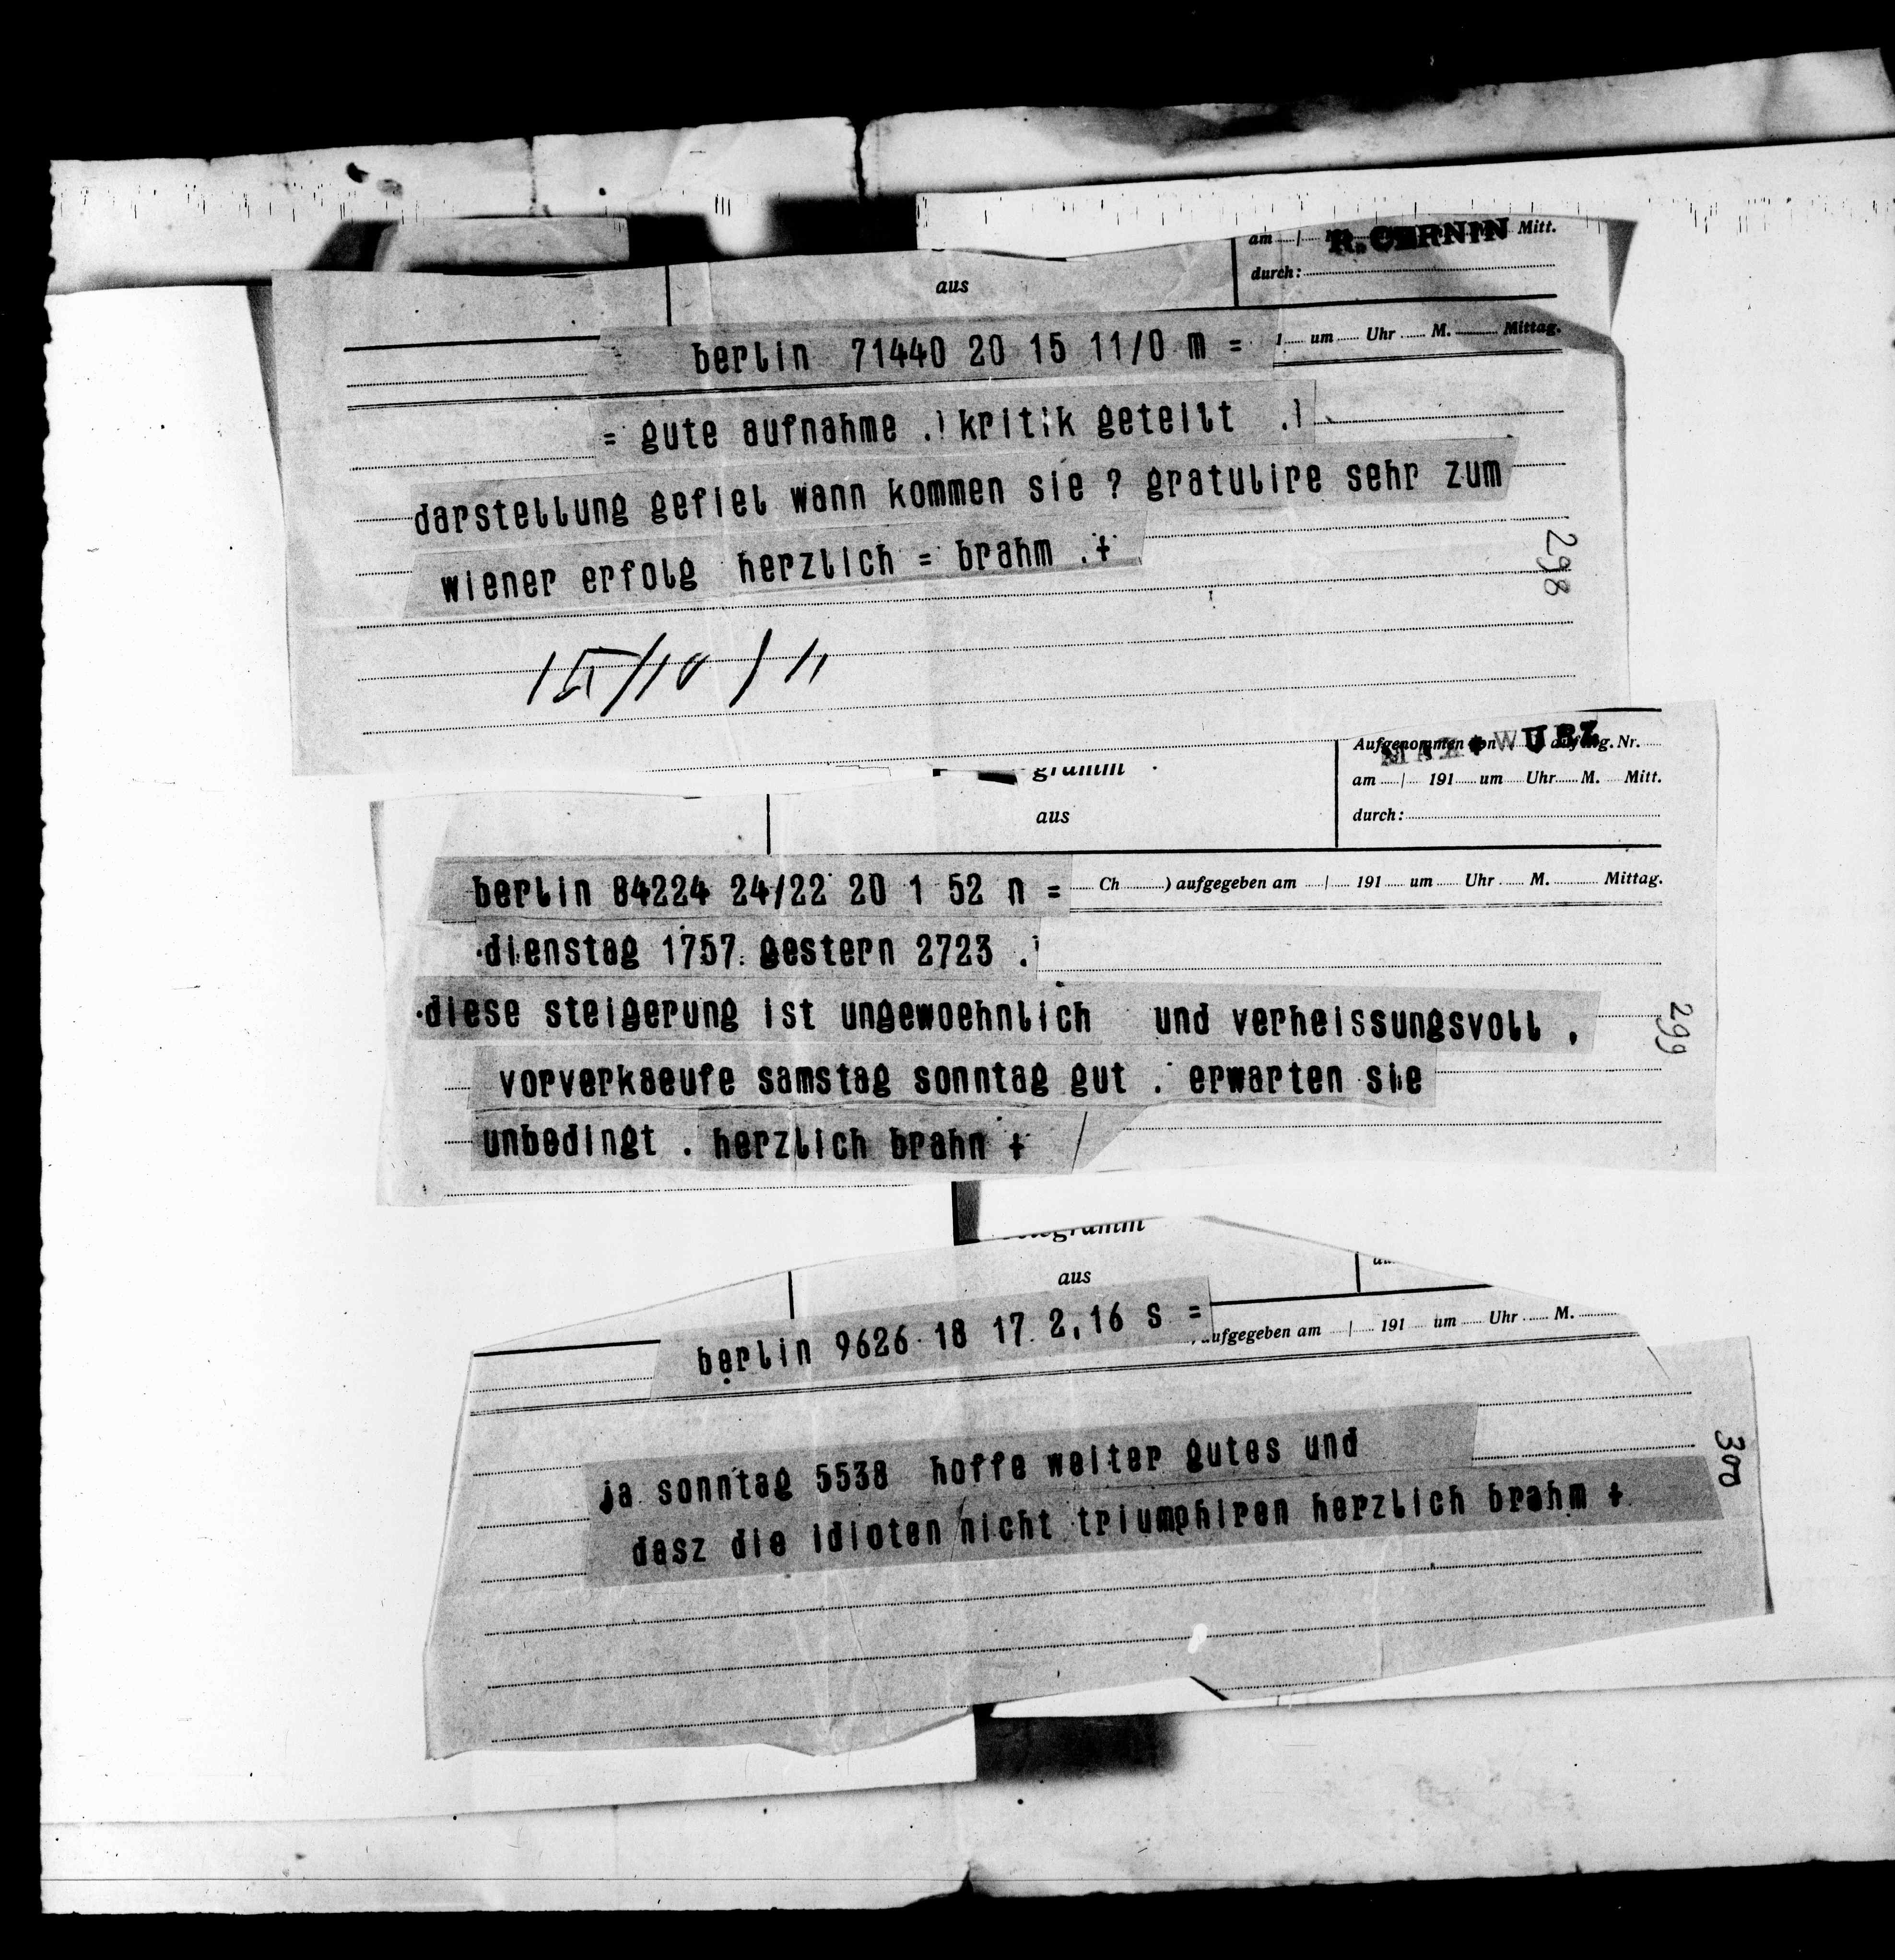 am 1 R. CERNIN Mitt.
aus
durch:
berlin 71440 20 15 11/0 m = 1 um Uhr M. Mittag.
= gute aufnahme .! kritik geteilt .!
darstellung gefiel wann kommen sie ? gratulire sehr zum
wiener erfolg herzlich = brahm .+
298
15/10/11
Aufgenommen von auf Ltg. Nr.
MAX WURZ
gramm
am / 191 um Uhr M. Mitt.
aus
durch:
berlin 84224 24/22 20 1 52 n = Ch ) aufgegeben am / 191 um Uhr M. Mittag.
dienstag 1757. gestern 2723 .
diese steigerung ist ungewoehnlich und verheissungsvoll .
299
vorverkaeufe samstag sonntag gut . erwarten sie
unbedingt . herzlich brahn +
egramm
aus
berlin 9626 18 17 2,16 s = ufgegeben am / 191 um Uhr M.
ja sonntag 5538 hoffe weiter gutes und
300
dasz die idioten nicht triumphiren herzlich brahm +